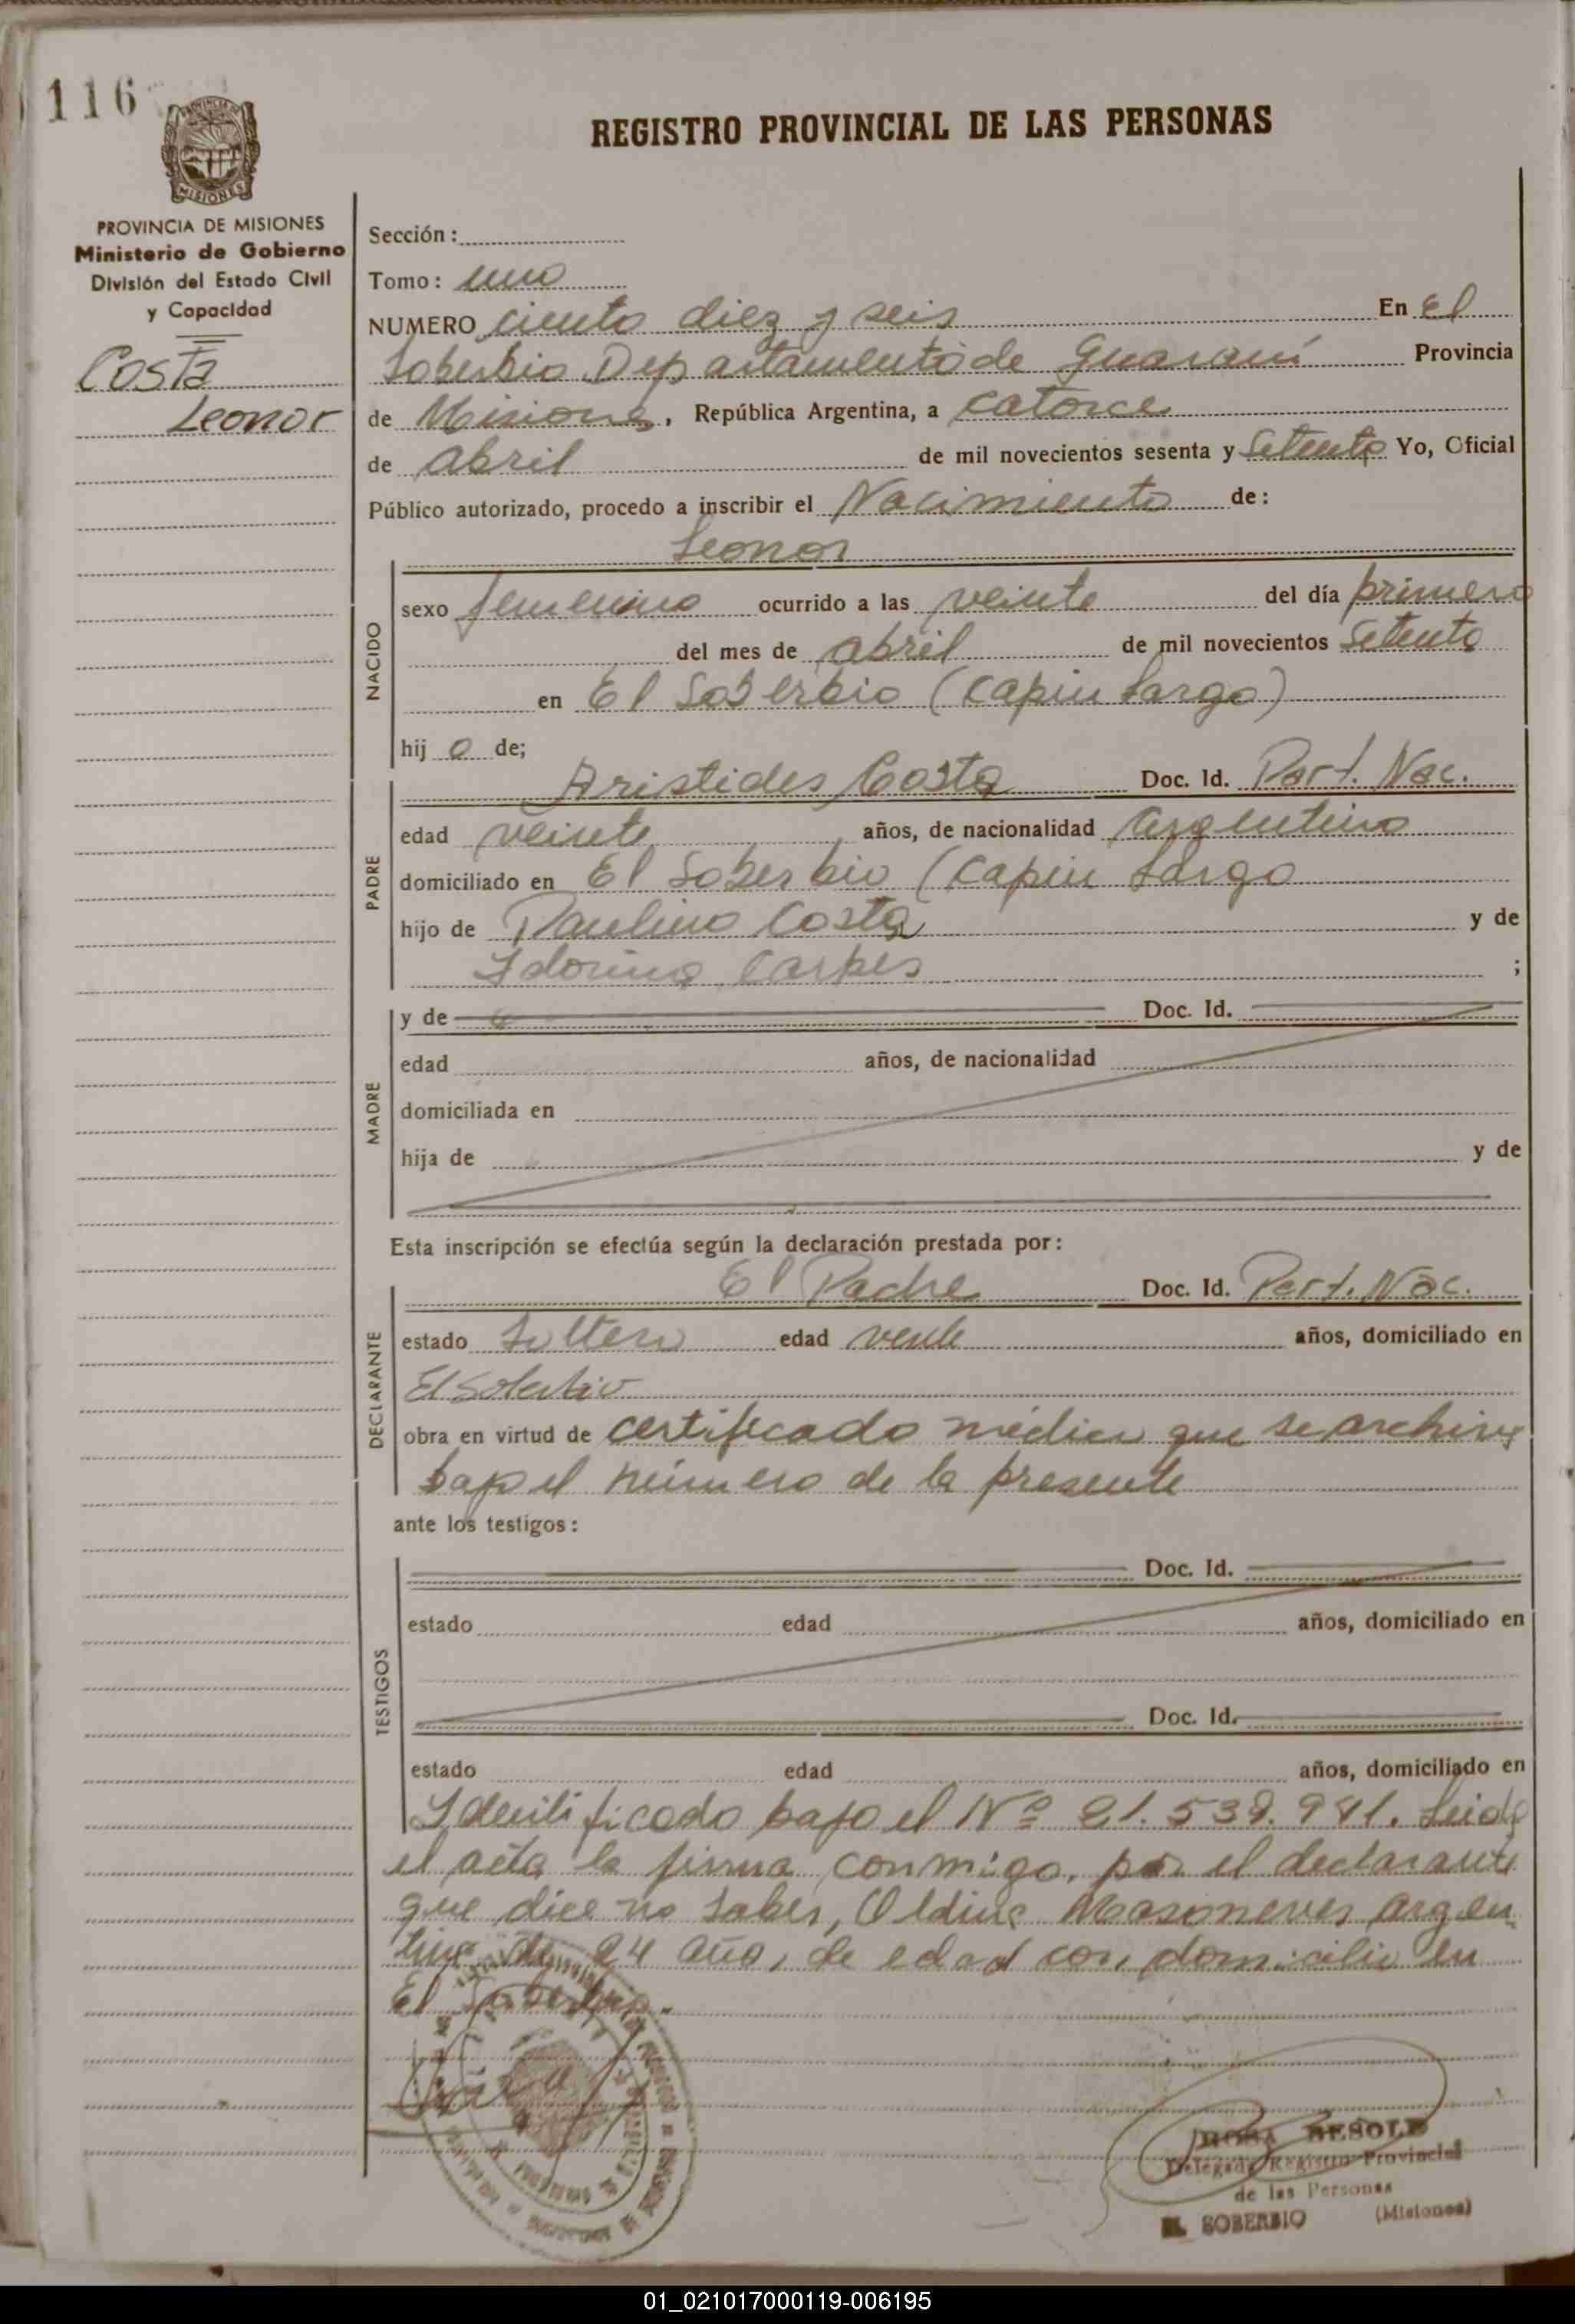 116
REGISTRO PROVINCIAL DE LAS PERSONAS
PROVINCIA DE MISIONES
Ministerio de Gobierno
División del Estado Civil
y Capacidad
Costa
Leonor
Sección:
Tomo: uno
NUMERO ciento diez y seis En El
Soberbio Departamento de Guaraní Provincia
de Misiones, República Argentina, a catorce
de abril de mil novecientos sesenta y Setenta Yo, Oficial
Público autorizado, procedo a inscribir el Nacimiento de:
Leonor
NACIDO
sexo femenino ocurrido a las veinte del día primero
del mes de abril de mil novecientos Setenta
en El Soberbio (Capin Largo)
hij a de;
PADRE
Aristides Costa Doc. Id. Part. Nac.
edad veinte años, de nacionalidad argentino
domiciliado en El Soberbio (Capin Largo
hijo de Paulino Costa y de
Idorina Carpes ;
MADRE
y de Doc. Id.
edad años, de nacionalidad
domiciliada en
hija de y de
Esta inscripción se efectúa según la declaración prestada por:
DECLARANTE
El Padre Doc. Id. Part. Nac.
estado Soltero edad veinte años, domiciliado en
El Soberbio
obra en virtud de certificado médico que se archiva
bajo el número de la presente
ante los testigos:
TESTIGOS
Doc. Id.
estado edad años, domiciliado en
Doc. Id.
estado edad años, domiciliado en
Identificado bajo el Nº 21.539.941. Leida
el acta la firma conmigo, por el declarante
que dice no saber, argen
tino de 24 años de edad con domicilio en
El Soberbio.
ROSA BESOLD
Delegada Registro Provincial
de las Personas
EL SOBERBIO (Misiones)
01_021017000119-006195